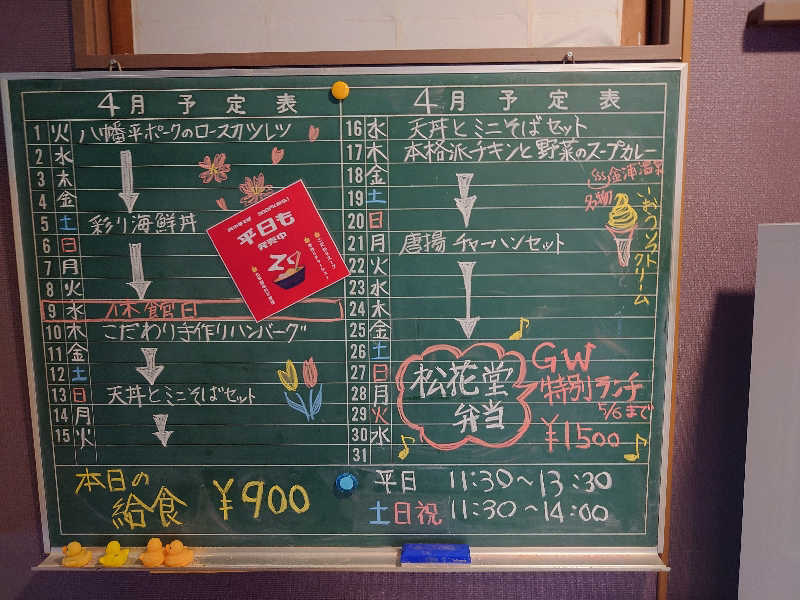 4月予定表
1 火 八幡平ポークのロースカツレツ
2 水
3 木
4 金
5 土 彩り海鮮丼
6 日
7 月
8 火
9 水 休館日
10 木 こだわり手作りハンバーグ
11 金
12 土
13 日 天丼とミニそばセット
14 月
15 火
平日も
発売中
4月予定表
16 水 天丼とミニそばセット
17 木 本格派チキンと野菜のスープカレー
18 金
19 土
20 日
21 月 唐揚チャーハンセット
22 火
23 水
24 木
25 金
26 土
27 日
28 月
29 火
30 水
31
名物
クリーム
松花堂
弁当
GW
特別ランチ
5/6まで
¥1500
本日の
給食 ¥900
平日 11:30~13:30
土日祝 11:30~14:00